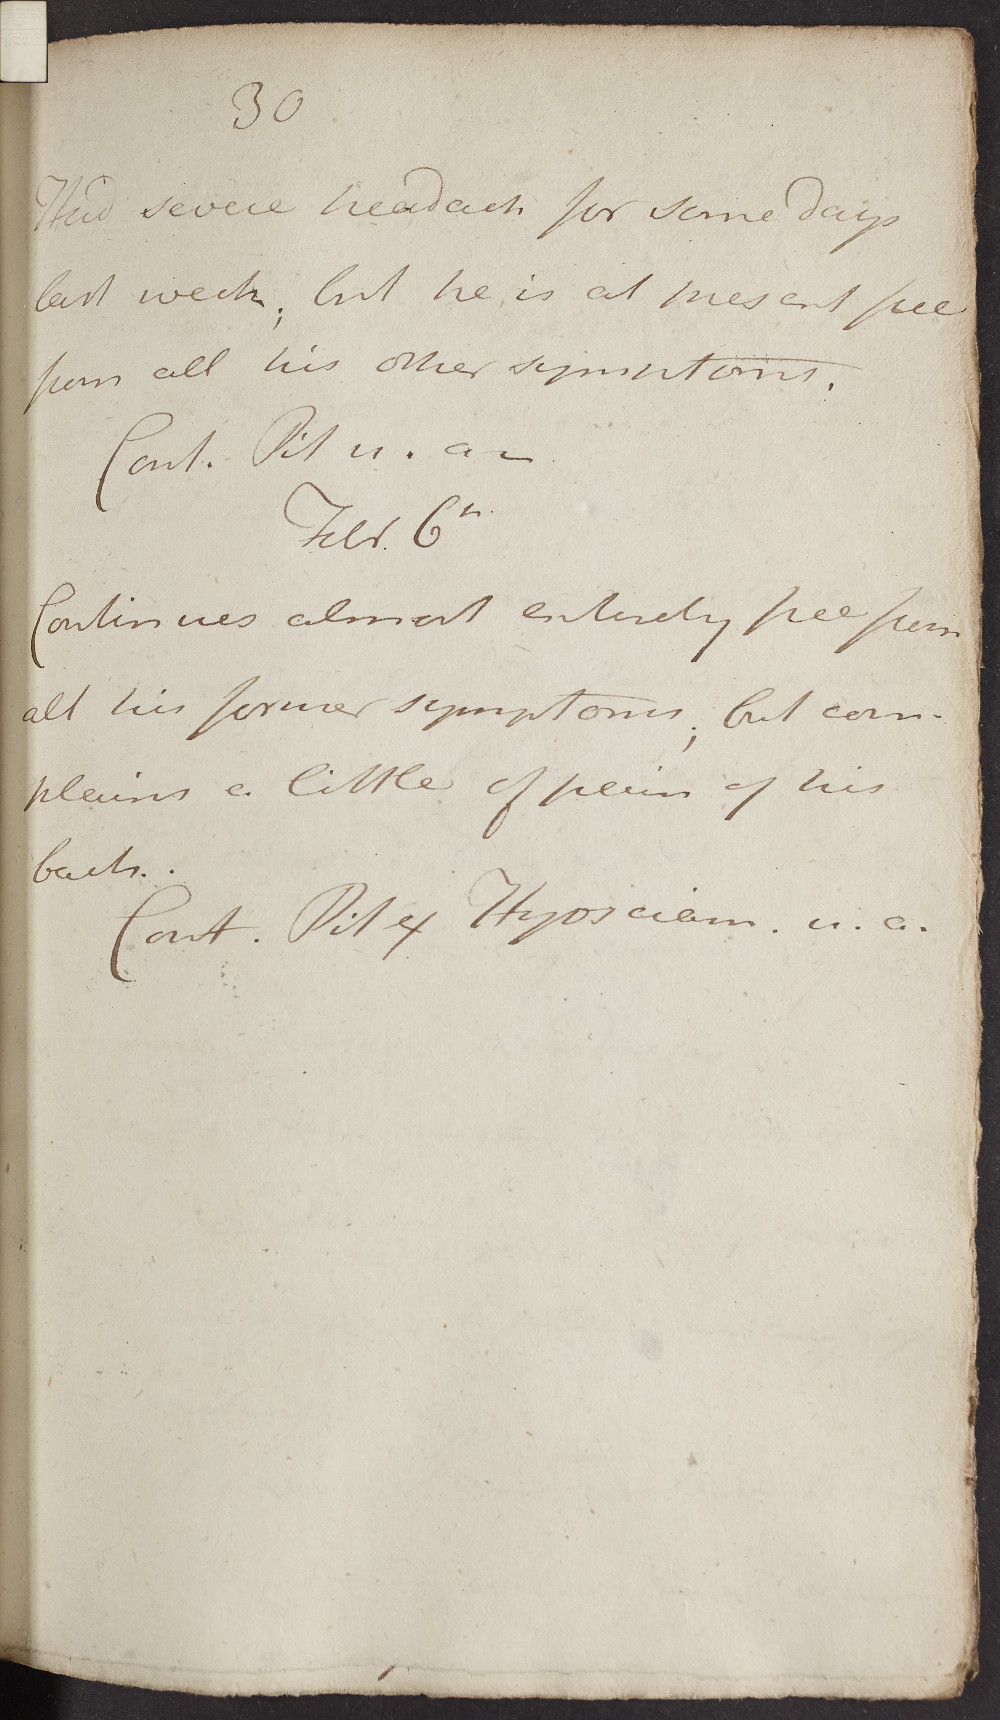 30
Had severe headach for some days
last week; but he is at present free
from all his other symptoms.
Cont. Pil u. a.
Febr. 6th
Continues almost entirely free from
all his former symptoms; but com-
plains a little of pain of his
back.
Cont. Pil ex Hyosciam. u. a.